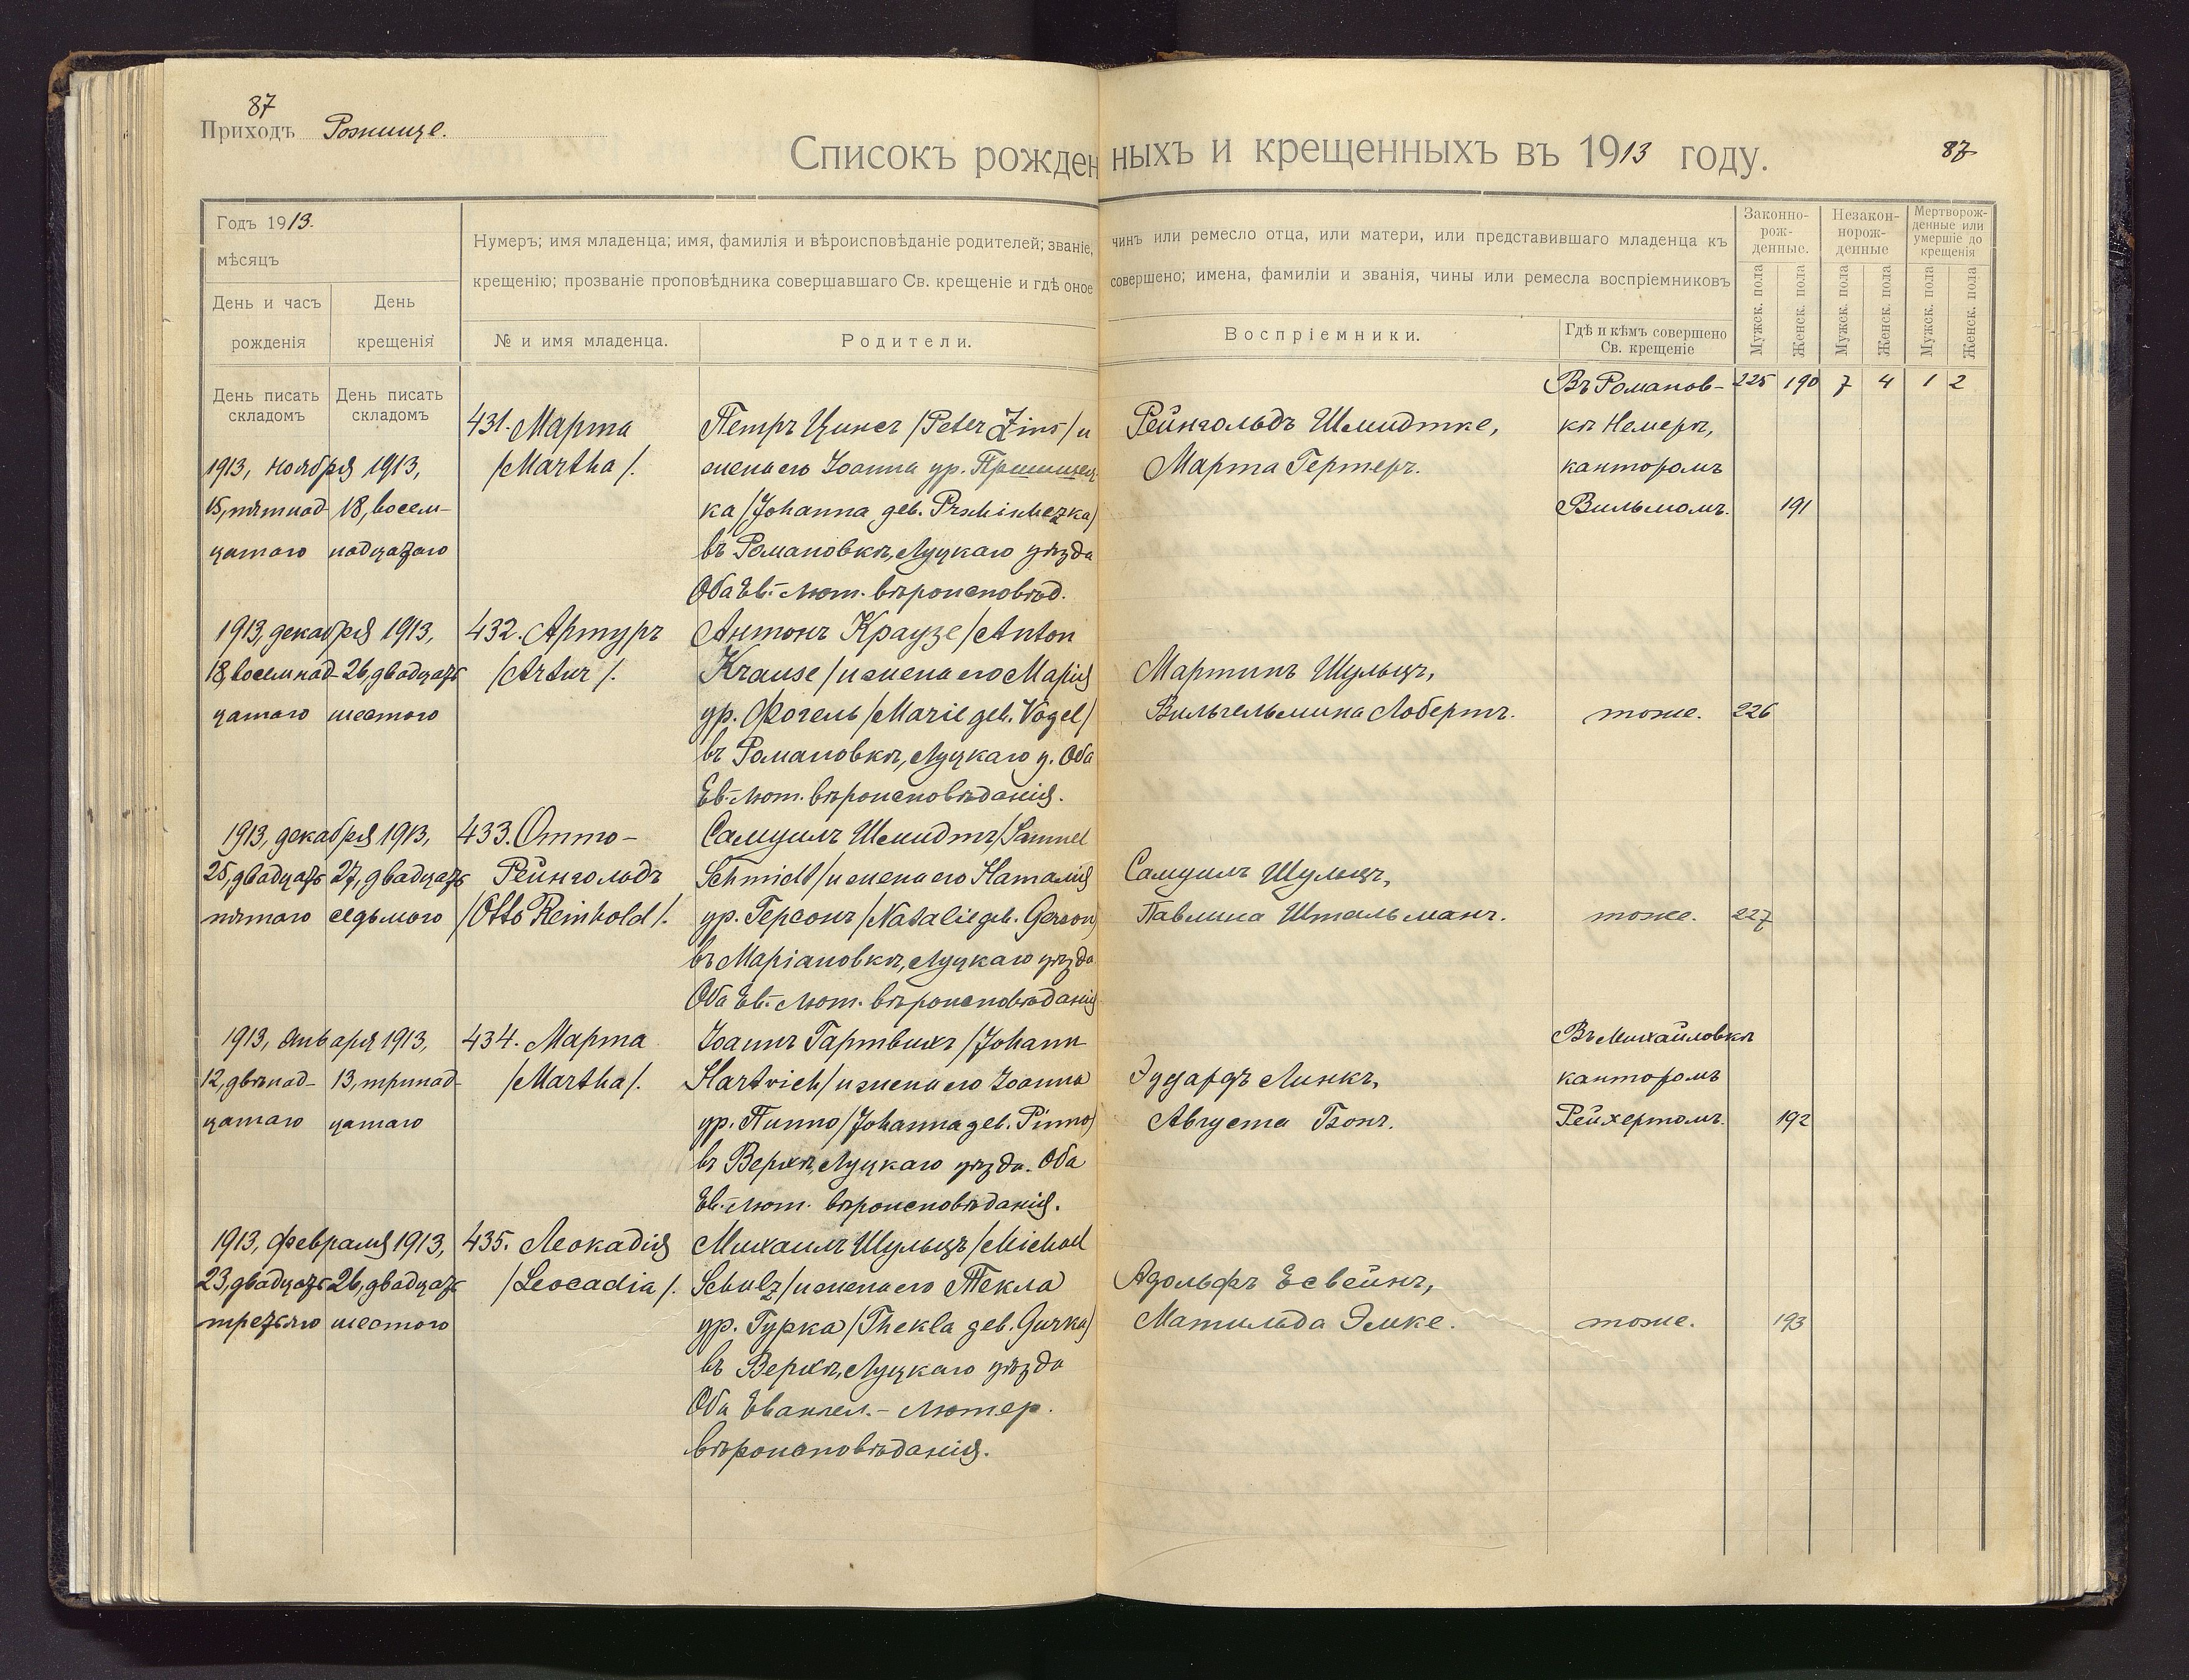 87
Приходъ Рожище.
Списокъ рожденныхъ и крещенныхъ въ 1913 году.
87
Годъ 1913.
мѣсяцъ
День и часъ рожденія
День крещенія
Нумеръ; имя младенца; имя, фамилія и вѣроисповѣданіе родителей; званіе, чинъ или ремесло отца, или матери, или представившаго младенца къ
крещенію; прозваніе проповѣдника совершавшаго Св. крещеніе и гдѣ оное совершено; имена, фамиліи и званія, чины или ремесла воспріемниковъ
№ и имя младенца.
Родители.
Воспріемники.
Гдѣ и кѣмъ совершено
Св. крещеніе
Законно-
рож-
денные.
Незакон-
норож-
денные
Мертворож-
денные или
умершіе до
крещенія
Мужск. пола
Женск. пола
Мужск. пола
Женск. пола
Мужск. пола
Женск. пола
День писать
складомъ
День писать
складомъ
225 190 7 4 1 2
1913, ноября 1913,
15, пятнад-
цатаго
18, восем-
надцатаго
431. Марта
/Martha/.
Петръ Цинсъ /Peter Zins/ и
жена его Іоанна ур. Пршишец
ка /Johanna geb. Prschischezka/
въ Романовкѣ, Луцкаго уѣзда
Оба Ев.-Лют. вѣроисповѣд.
Рейнгольдъ Шмидтке,
Марта Гертеръ.
Въ Романов-
кѣ Немеръ,
канторомъ
Вильмомъ.
191
1913, декабря 1913,
18, восемнад-
цатаго
26, двадцать
шестого
432. Артуръ
/Artur/.
Антонъ Краузе /Anton
Krause/ и жена его Марія
ур. Фогель /Marie geb. Vogel/
въ Романовкѣ, Луцкаго у. Оба
Ев.-Лют. вѣроисповѣданія.
Мартинъ Шульцъ,
Вильгельмина Лобертъ.
тоже.
226
1913, декабря 1913,
25, двадцать
пятаго
27, двадцать
седьмого
433. Отто-
Рейнгольдъ
/Otto Reinhold/.
Самуилъ Шмидтъ /Samuel
Schmidt/ и жена его Наталія
ур. Герсонъ /Natalie geb. Gerson/
въ Маріановкѣ, Луцкаго уѣзда
Оба Ев.-Лют. вѣроисповѣданія
Самуилъ Шульцъ,
Павлина Штальманъ.
тоже.
227
1913, января 1913,
12, двѣнад-
цатаго
13, тринад-
цатаго
434. Марта
/Martha/.
Іоаннъ Гартвихъ /Johann
Hartvich/ и жена его Іоанна
ур. Пинно /Johanna geb. Pinno/
въ Верхѣ, Луцкаго уѣзда. Оба
Ев.-Лют. вѣроисповѣданія.
Эдуардъ Линкъ,
Августа Гзонъ.
Въ Михайловкѣ
канторомъ
Рейхертомъ.
192
1913, февраля 1913,
23, двадцать
третьяго
26, двадцать
шестого
435. Леокадія
/Leocadia/.
Михаилъ Шульцъ /Michael
Schulz/ и жена его Текла
ур. Гурка /Thekla geb. Gurka/
въ Верхѣ, Луцкаго уѣзда
Оба Евангел.-Лютер.
вѣроисповѣданія.
Адольфъ Есвейнъ,
Матильда Эмке.
тоже.
193